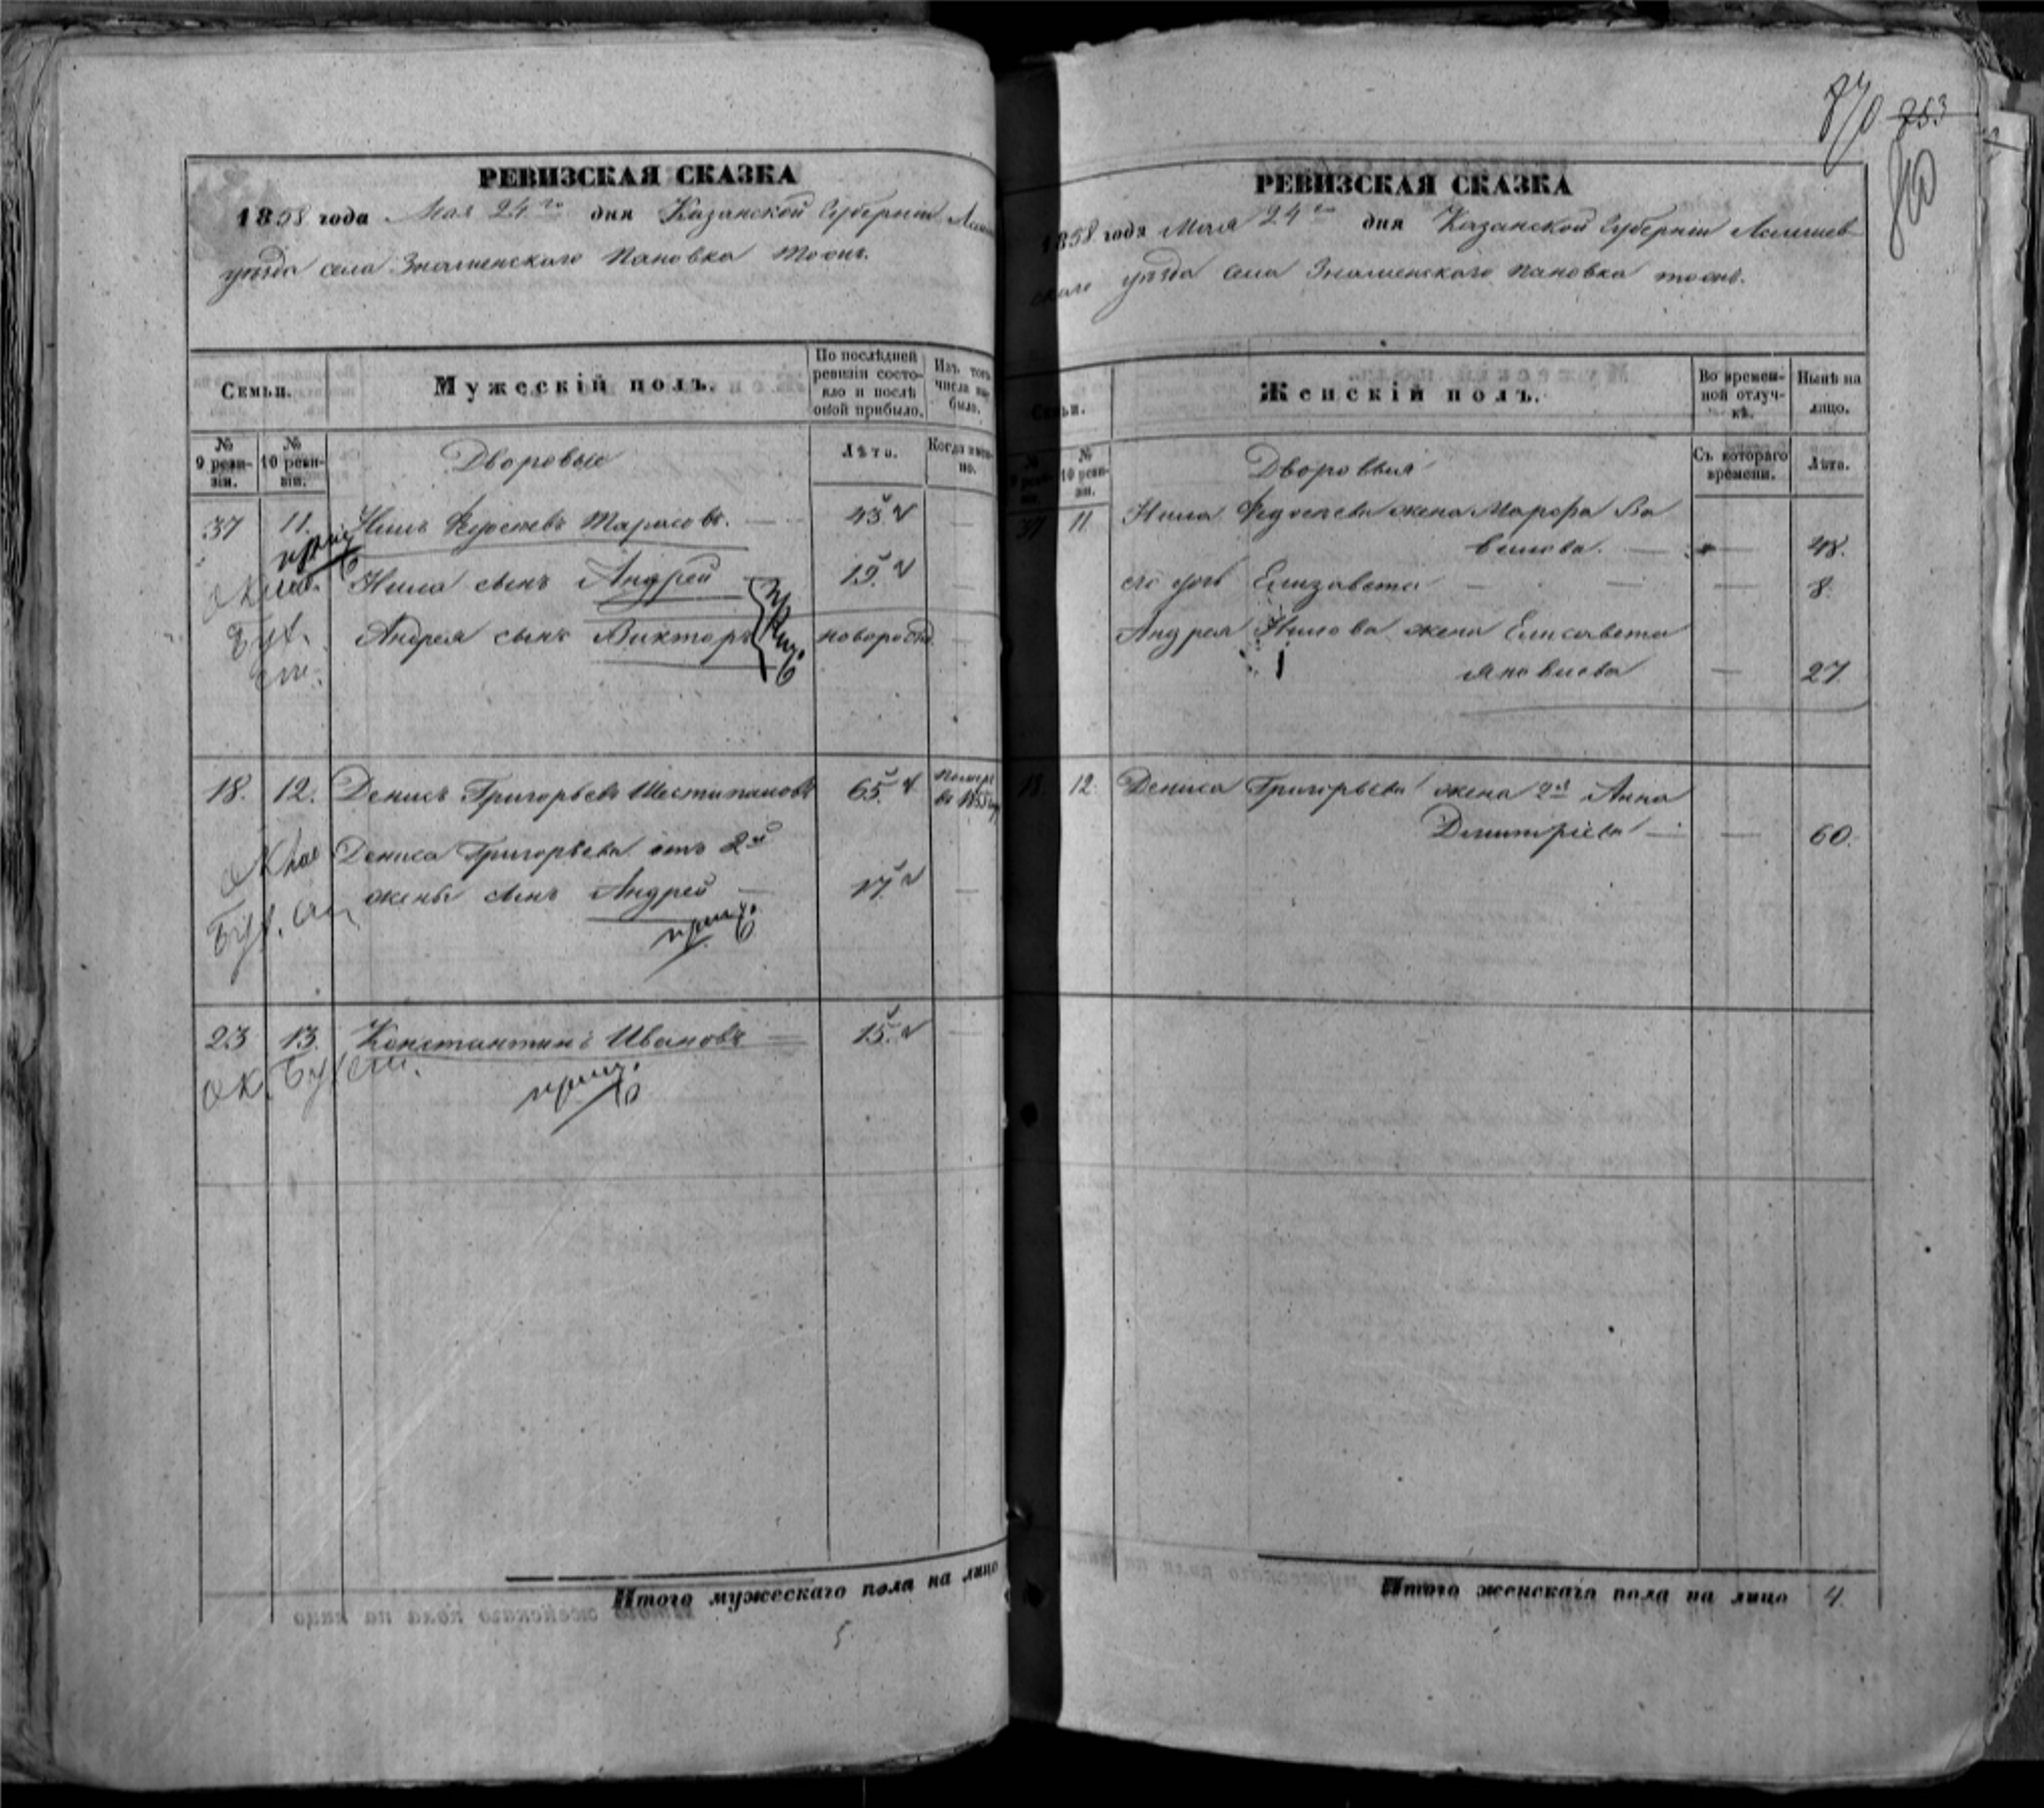 РЕВИЗСКАЯ СКАЗКА
1858 года Мая 24го дня Казанской Губерніи
уѣзда села Знаменскаго Пановка тожъ.
Семьи.
Мужескій полъ.
По послѣдней ревизіи состояло и послѣ оной прибыло.
Изъ того числа выбыло.
№ 9 ревизіи.
№ 10 ревизіи.
Дворовые
Лѣта.
Когда именно.
37 11. Нилъ Федосеевъ Тарасовъ. — 43.
Нила сынъ Андрей — 19.
Андрея сынъ Викторъ новорожд
18. 12. Денисъ Григорьевъ 65. померъ въ 1855 году
Дениса Григорьева отъ 2й
жены сынъ Андрей — 17.
23 13. Константинъ Ивановъ — 15.
Итого мужескаго пола на лицо
5.
870 853
РЕВИЗСКАЯ СКАЗКА
1858 года Мая 24го дня Казанской Губерніи Лаишев
скаго уѣзда села Знаменскаго Пановка тожъ.
Семьи.
Женскій полъ.
Во временной отлучкѣ.
Нынѣ на лицо.
№ 9 ревизіи.
№ 10 ревизіи.
Дворовыя
Съ котораго времени.
Лѣта.
37 11. Нила Федосеева жена Марфа Ва
вилова. — — 48.
его дочь Елизавета — — — 8.
Андрея Нилова жена Елисавета
Яковлева — 27.
18 12. Дениса Григорьева жена 2я Анна
Димитріева — — 60.
Итого женскаго пола на лицо 4.